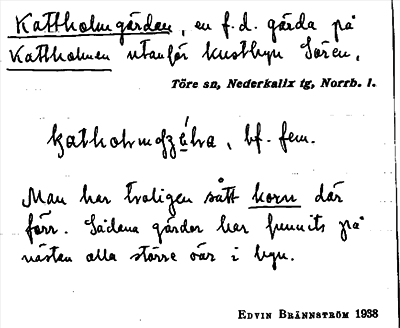 Kattholmgärdan, en f.d. gärda på
Kattholmen utanför kustbyn Sören,
Töre sn, Nederkalix tg, Norrb. l.
bf. fem.
Man har troligen sått korn där
förr. Sådana gärdor har funnits på
nästan alla större öar i byn.
EDVIN BRÄNNSTRÖM 1938